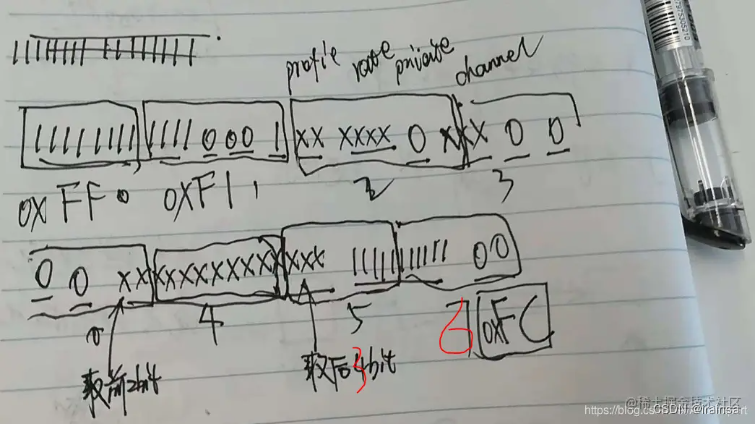 11111111 11111111
profile rate private channel
11111111 1111 0 0 0 1 xx xxxx 0 xxx 0 0
0xFF 0 0xF1 1 2 3
0 0 xx xxxxxxxxx xxx 11111 111111 00
4 5 6 0xFC
取前2bit 取后3bit
@稀土掘金技术社区
https://blog.cs CSDN @irainsa rt